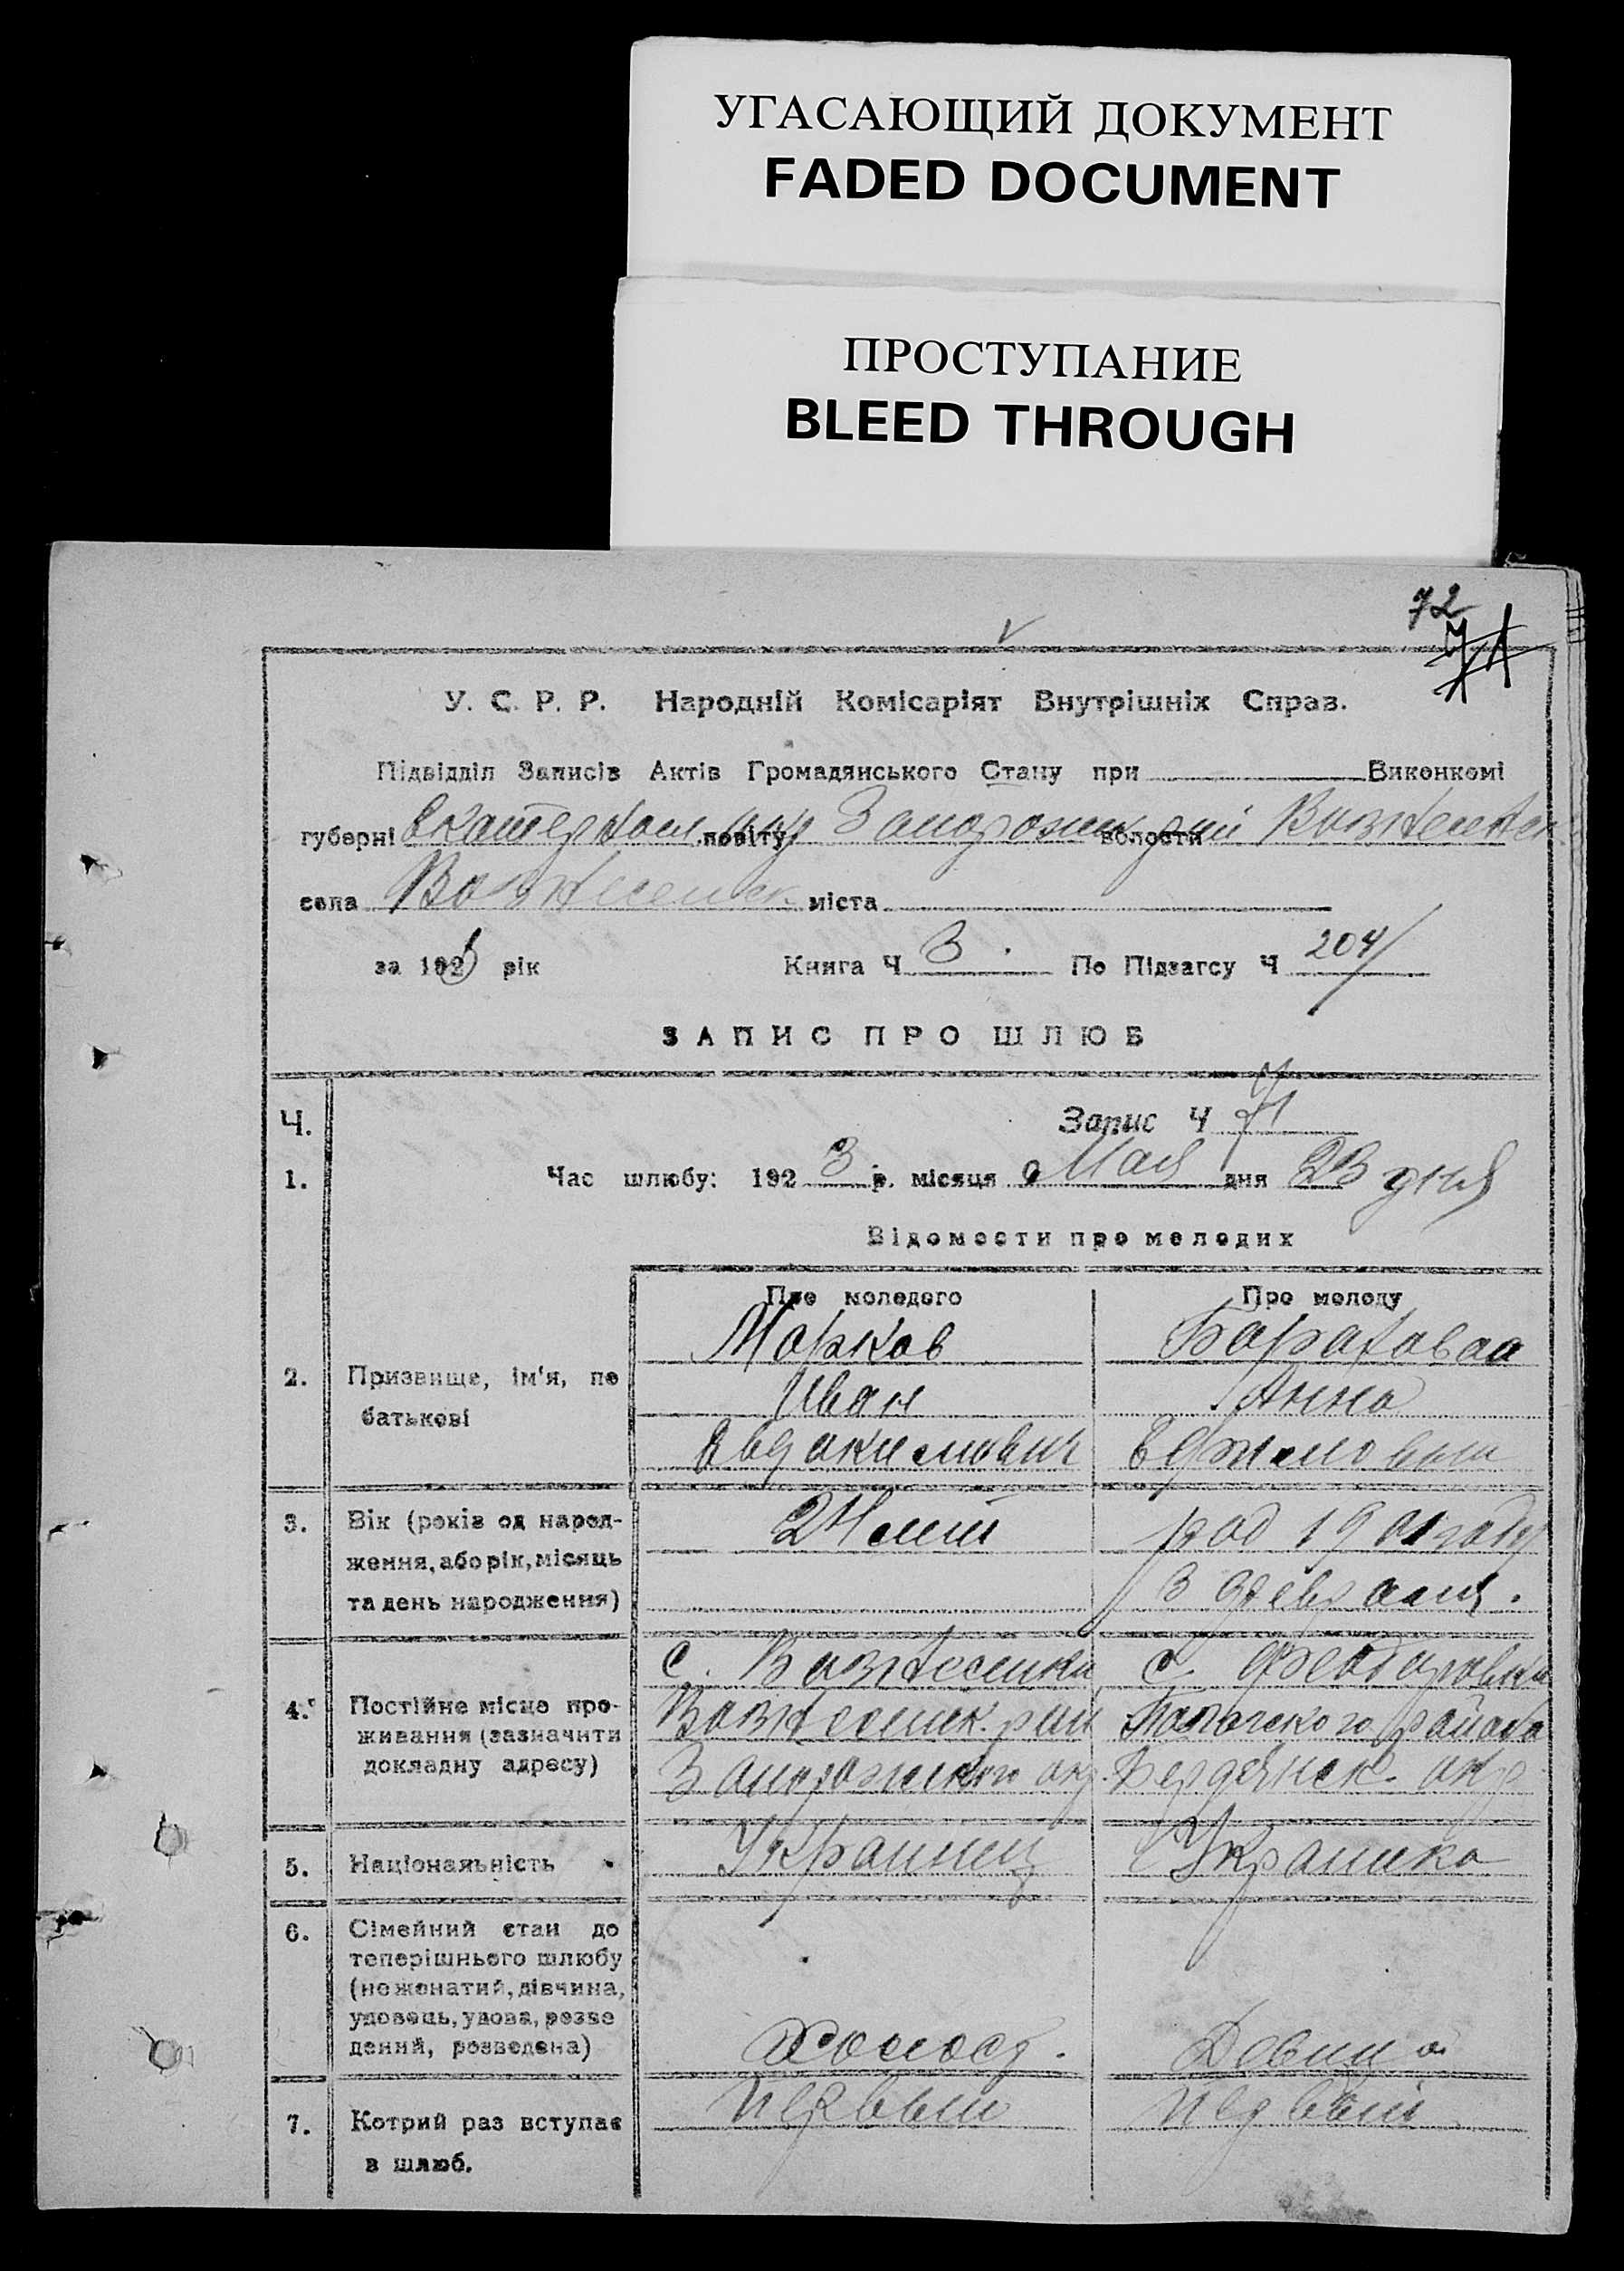 УГАСАЮЩИЙ ДОКУМЕНТ
FADED DOCUMENT
ПРОСТУПАНИЕ
BLEED THROUGH
72
71
У. С. Р. Р. Народній Комісаріят Внутрішніх Справ.
Підвідділ Записів Актів Громадянського Стану при Виконкомі
губерні повіту волости
села Вознесенск міста
за 1923 рік Книга Ч 3. По Підзагсу Ч 204
ЗАПИС ПРО ШЛЮБ
Ч. Запис Ч 71
1. Час шлюбу: 1923 р. місяця Мая дня 23 дня
Відомости про молодих
Про молодого Про молоду
Марков
2. Призвище, ім'я, по
Иван Анна
батькові
Авдакимович
3. Вік (років од народ-
24 лет род 1901 году
ження, або рік, місяць
та день народження) 3 февраля.
с. Вознесенки с. Федоровки
4. Постійне місце про-
Вознесенск. района
живання (зазначити
докладну адресу)
Запорожского окр. Бердянск. окр.
5. Національність Украинец Украинка
6. Сімейний стан до
теперішнього шлюбу
(неженатий, дівчина,
удовець, удова, розве
дений, розведена) Холост. Девица
7. Котрий раз вступає Первый Первый
в шлюб.